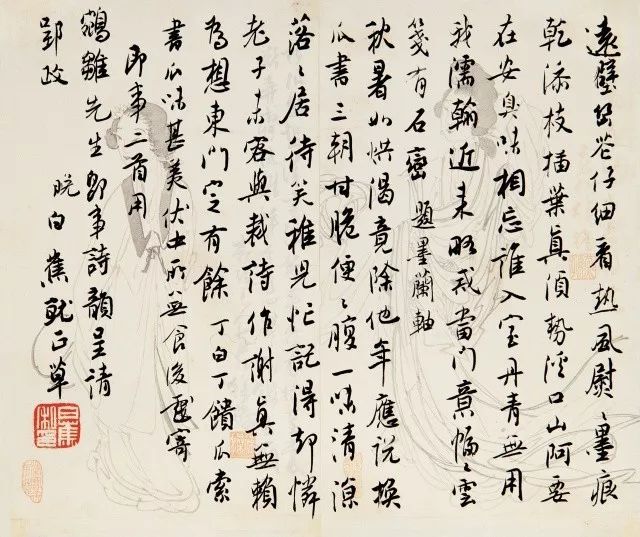 遠花仔細看熱風慰々墨痕
乾添枝插葉真須勢溪口山阿要
在安臭味相忘誰入室丹青無用
我濡翰近来略戒當門意幅々雲
箋有石巒 題墨蘭軸
秋暑如烘渴竟除他年應説換
瓜書三朝甘脆便々腹一味清涼
落々居待笑稚兒忙記得却憐
老子未容與裁詩作謝真無賴
為想東門定有餘 丁白丁饋瓜索
書瓜味甚美伏中所無食後戲寄
即事二首用
鵷雛先生即事詩韻呈請
郢政
晚白蕉就正草